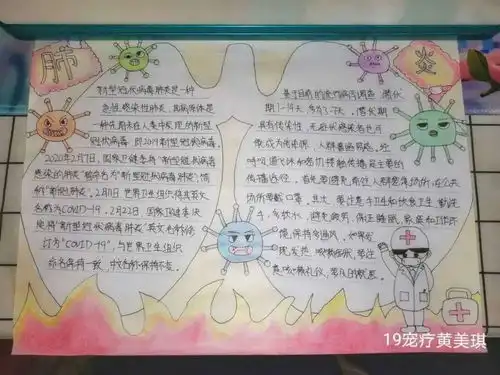 肺
炎
新型冠状病毒肺炎是一种
急性感染性肺炎，其病原体是
一种先前未在人类中发现的新型
冠状病毒，即2019新型冠状病毒。
2020年2月7日，国家卫健委将"新型冠状病毒
感染的肺炎"暂命名为"新型冠状病毒肺炎"，简
称"新冠肺炎"，2月11日世界卫生组织将其英文
名称为COVID-19，2月22日国家卫健委决
定将"新型冠状病毒肺炎"英文名称修
订为"COVID-19"，与世界卫生组织
命名保持一致，中文名称保持不变。
基于目前的流行病学调查，潜伏
期1-14天，多为3-7天，潜伏期
具有传染性，无症状感染者也可
能成为传染源，人群普遍易感，经
呼吸道飞沫和密切接触传播是主要的
传播途径。首先要避免前往人群密集场所，在公共
场所要戴口罩，其次，要注意手卫生和饮食卫生，勤洗
手，多饮水，避免疲劳，保证睡眠，家庭和工作环
境，保持多通风，
现发热、咳嗽
19宠疗黄美琪